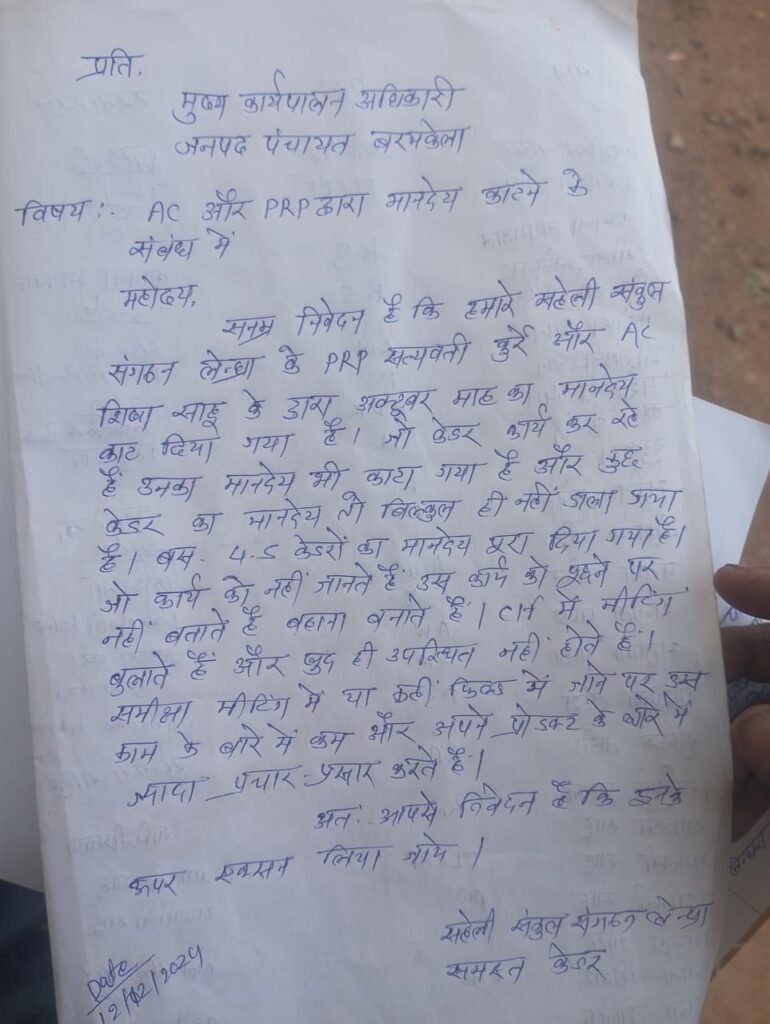 प्रति,
मुख्य कार्यपालन अधिकारी
जनपद पंचायत बरमकेला
विषय:- AC और PRP द्वारा मानदेय काटने के
संबंध में
महोदय,
सनम्र निवेदन है कि हमारे सहेली संकुल
संगठन लेन्ध्रा के PRP सत्यवती कुर्रे और AC
शिखा साहू के द्वारा अक्टूबर माह का मानदेय
काट दिया गया है। जो केडर कार्य कर रहे
हैं उनका मानदेय भी काटा गया है और कुछ
केडर का मानदेय तो बिल्कुल ही नहीं डाला गया
है। बस 4-5 केडरों का मानदेय पूरा दिया गया है।
जो कार्य को नहीं जानते हैं उस कार्य को पूछने पर
नहीं बताते है बहाना बनाते हैं। CLF में मीटिंग
बुलाते हैं और खुद ही उपस्थित नहीं होते हैं।
समीक्षा मीटिंग में या कहीं फिल्ड में जाने पर उस
काम के बारे में कम और अपने प्रोडक्ट के बारे में
ज्यादा प्रचार-प्रसार करते हैं।
अतः आपसे निवेदन है कि इनके
ऊपर एक्सन लिया जाये।
सहेली संकुल संगठन लेन्ध्रा
समस्त केडर
Date
12/12/2024